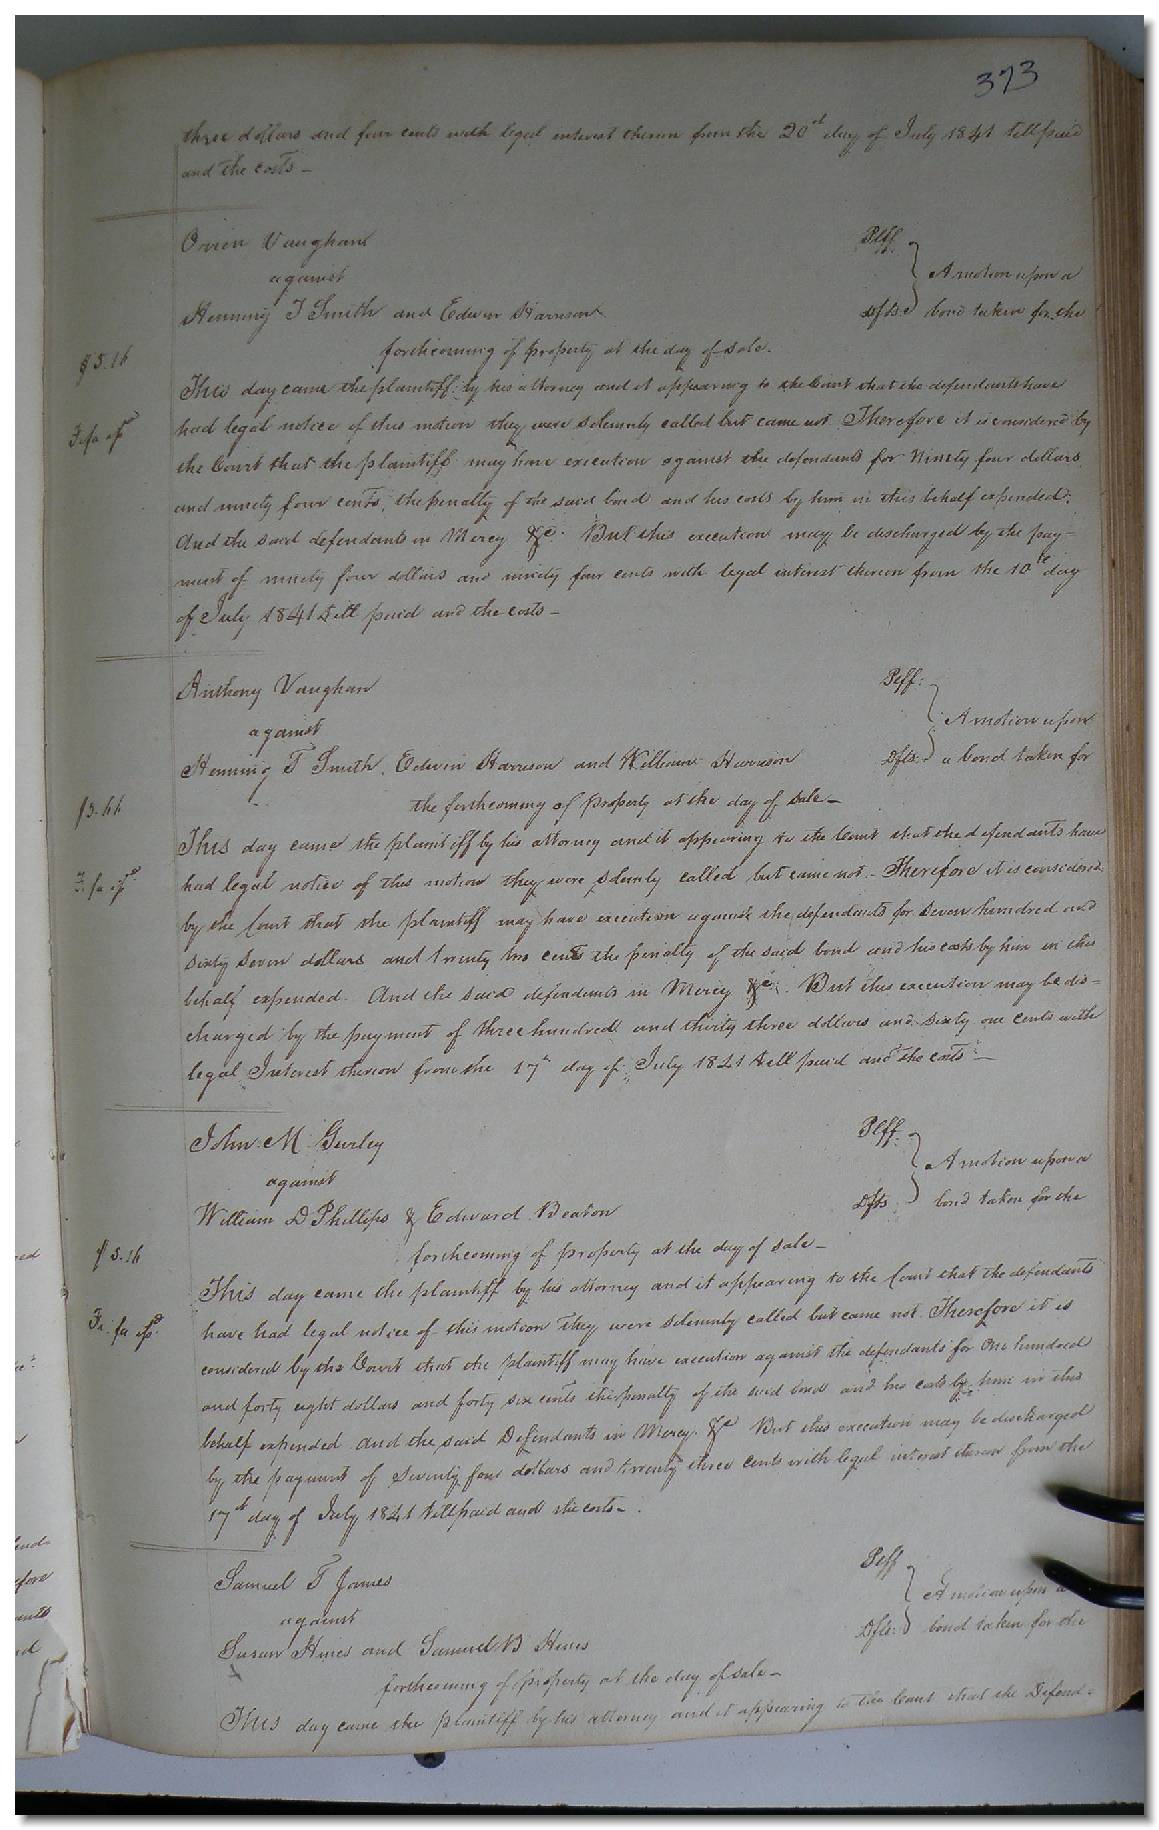 373
three dollars and four cents with legal interest thereon from the 20th day of July 1841 till paid
and the costs —
Orrien Vaughan Plff.
against A motion upon a
Henning T Smith and Edwin Harrison Dfts. bond taken for the
forthcoming of property at the day of sale.
$5.16
This day came the plaintiff by his attorney and it appearing to the Court that the defendants have
Fi fa
had legal notice of this motion they were solemnly called but came not Therefore it is considered by
the Court that the plaintiff may have execution against the defendants for Ninety four dollars
and ninety four cents, the penalty of the said bond and his costs by him in this behalf expended.
And the said defendants in Mercy &c. But this execution may be discharged by the pay-
ment of ninety four dollars and ninety four cents with legal interest thereon from the 10th day
of July 1841 till paid and the costs —
Anthony Vaughan Plff:
against A motion upon
Henning T Smith, Edwin Harrison and William Harrison Dfts: a bond taken for
the forthcoming of property at the day of sale —
This day came the plaintiff by his attorney and it appearing to the Court that the defendants have
Fi fa
had legal notice of this motion they were solemnly called but came not — Therefore it is considered
by the Court that the plaintiff may have execution against the defendants for Seven hundred and
sixty seven dollars and twenty two cents the penalty of the said bond and his costs by him in this
behalf expended. And the said defendants in Mercy &c. But this execution may be dis-
charged by the payment of three hundred and thirty three dollars and sixty one cents with
legal Interest thereon from the 17th day of July 1841 till paid and the costs —
John M Gurley Plff.
against A motion upon a
William D Phillips & Edward Beaton Dfts bond taken for the
forthcoming of property at the day of sale —
$5.16
This day came the plaintiff by his attorney and it appearing to the Court that the defendants
Fi. fa
have had legal notice of this motion They were solemnly called but came not. Therefore it is
considered by the Court that the plaintiff may have execution against the defendants for One hundred
and forty eight dollars and forty six cents the penalty of the said bond and his costs by him in this
behalf expended and the said Defendants in Mercy. &c But this execution may be discharged
by the payment of seventy four dollars and twenty three cents with legal interest thereon from the
17th day of July 1841 till paid and the costs —.
Samuel T James Plff
against A motion upon a
Susan Hines and Samuel B Hines Dfts: bond taken for the
forthcoming of property at the day of sale —
This day came the plaintiff by his attorney and it appearing to the Court that the Defend-